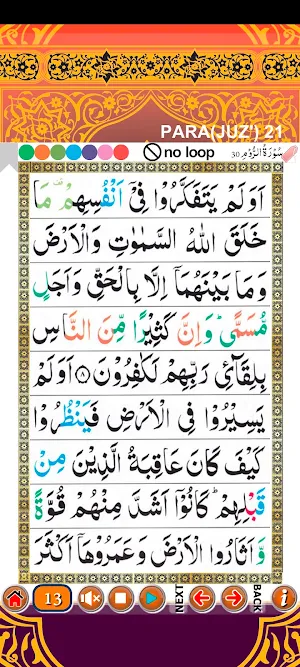 PARA(JUZ') 21
no loop
سُوْرَةُ الرُّوْمِ 30
اَوَلَمْ يَتَفَكَّرُوْا فِیْۤ اَنْفُسِهِمْ ۫ مَا
خَلَقَ اللهُ السَّمٰوٰتِ وَالْاَرْضَ
وَمَا بَيْنَهُمَاۤ اِلَّا بِالْحَقِّ وَاَجَلٍ
مُّسَمًّی ؕ وَاِنَّ كَثِيْرًا مِّنَ النَّاسِ
بِلِقَآئِ رَبِّهِمْ لَكٰفِرُوْنَ ﴿۸﴾ اَوَلَمْ
يَسِيْرُوْا فِی الْاَرْضِ فَيَنْظُرُوْا
كَيْفَ كَانَ عَاقِبَةُ الَّذِيْنَ مِنْ
قَبْلِهِمْ ؕ كَانُوْۤا اَشَدَّ مِنْهُمْ قُوَّةً
وَّاَثَارُوا الْاَرْضَ وَعَمَرُوْهَاۤ اَكْثَرَ
13
NEXT
BACK
i